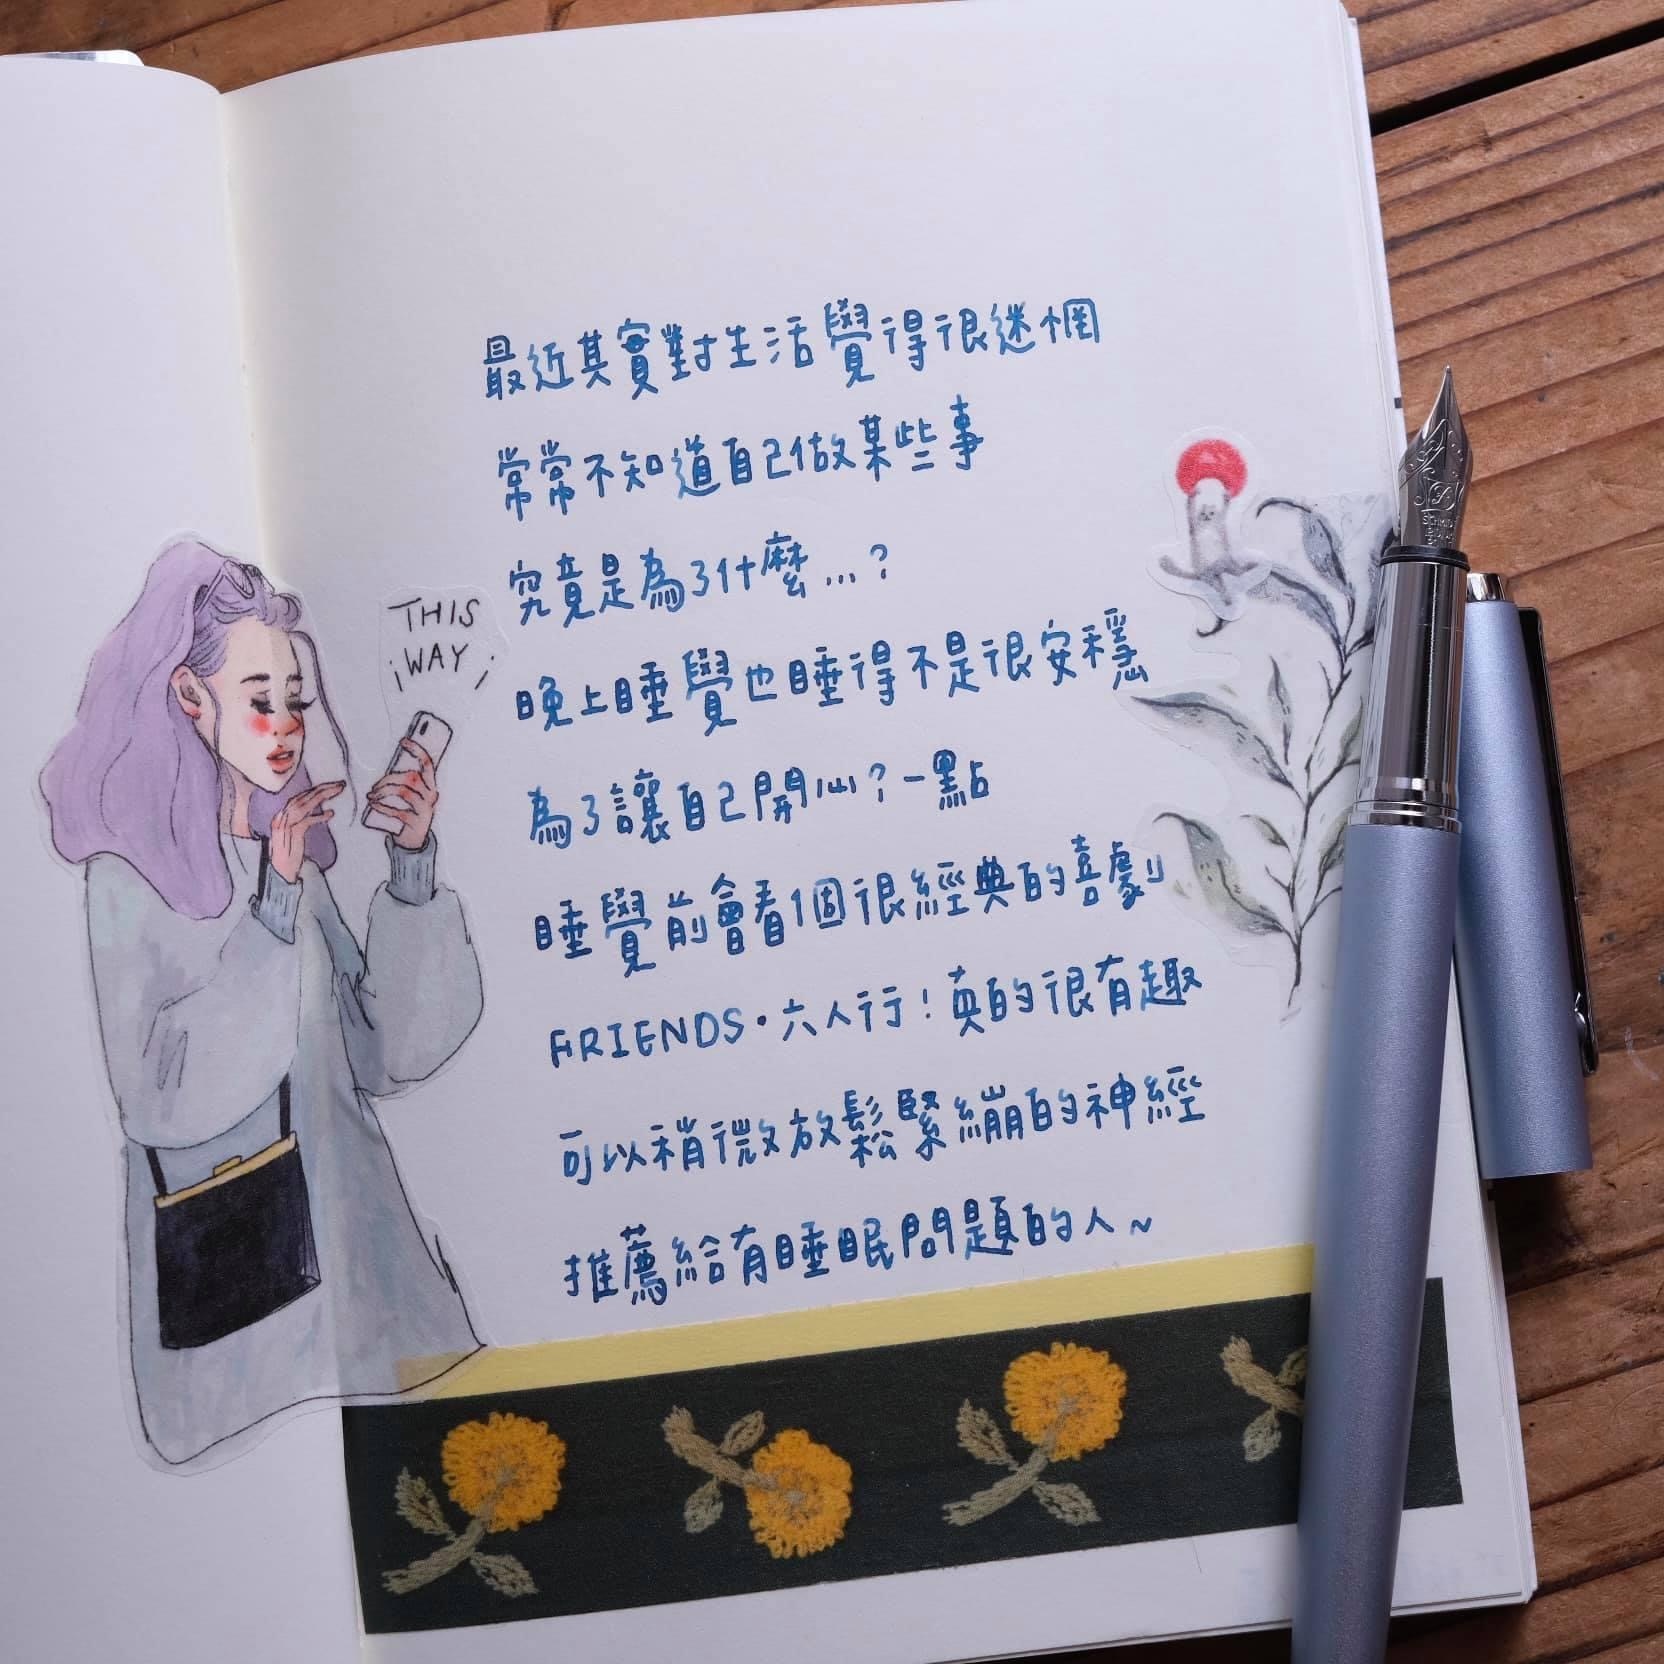 最近其實對生活覺得很迷惘
常常不知道自己做某些事
究竟是為了什麼...?
晚上睡覺也睡得不是很安穩
為了讓自己開心?一點
睡覺前會看1個很經典的喜劇
FRIENDS·六人行!真的很有趣
可以稍微放鬆緊繃的神經
推薦給有睡眠問題的人~
THIS
WAY
SCHMIDT